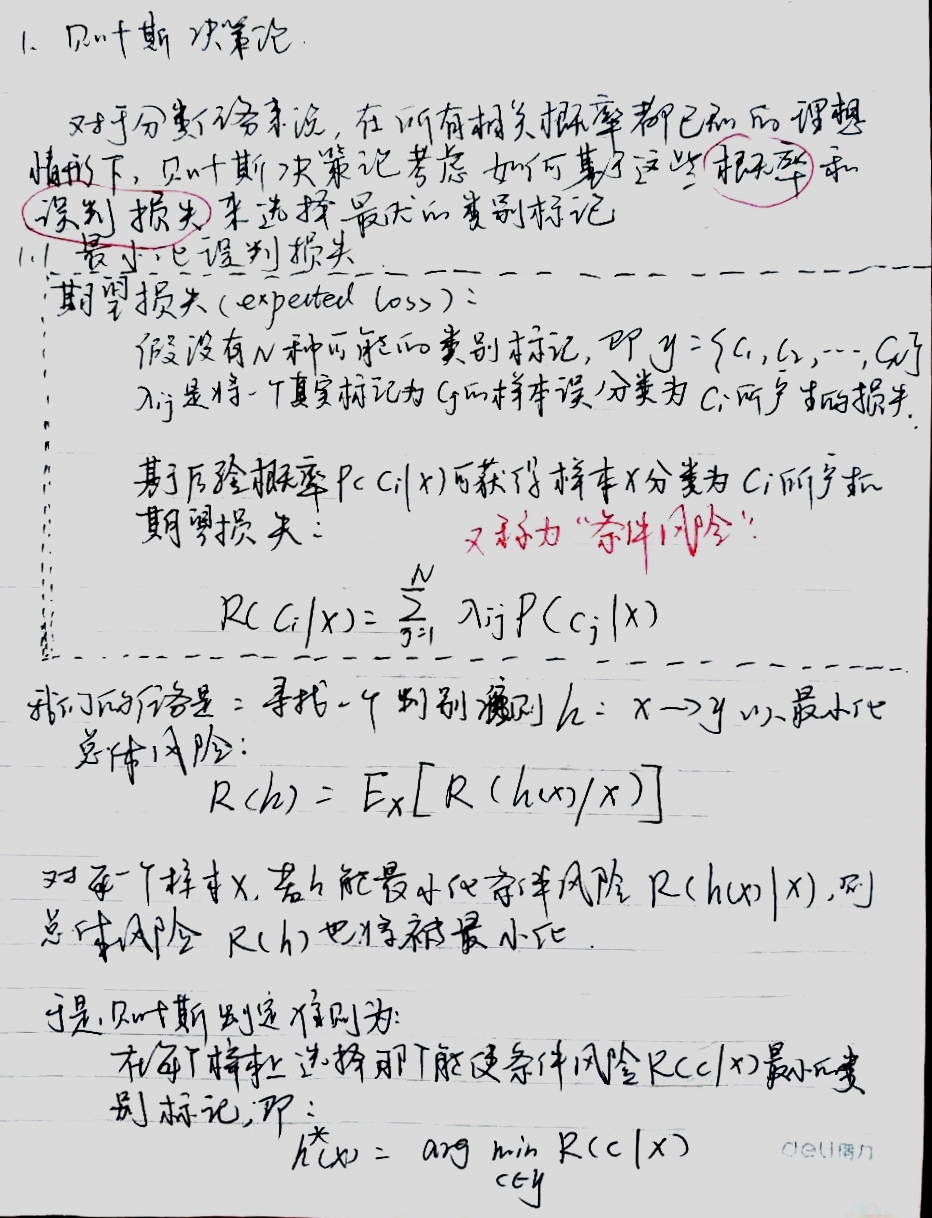 1. 贝叶斯决策论.
对于分类任务来说, 在所有相关概率都已知的理想
情形下, 贝叶斯决策论考虑如何基于这些概率和
误判损失来选择最优的类别标记
1.1 最小化误判损失
期望损失(expected loss):
假设有N种可能的类别标记, 即 y={c₁, c₂, ···, cN}
λij是将一个真实标记为cj的样本误分类为ci所产生的损失.
基于后验概率P(ci|x)可获得样本x分类为ci所产生的
期望损失:
又称为“条件风险”.
R(ci|x) = ∑_{j=1}^{N} λij P(cj|x)
我们的任务是: 寻找一个判别准则 h: x→y 以最小化
总体风险:
R(h) = Ex[R(h(x)|x)]
对每一个样本x, 若h能最小化条件风险 R(h(x)|x), 则
总体风险 R(h)也将被最小化.
于是, 贝叶斯判定准则为:
在每个样本上选择那个能使条件风险R(c|x)最小的类
别标记, 即:
h*(x) = arg min_{c∈y} R(c|x)
deli得力